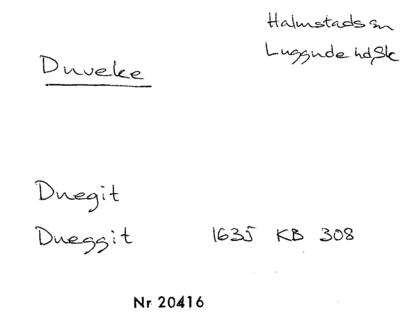 Halmstads sn
Luggude hd, Sk
Duveke
Duegit
Dueggit 1635 KB 308
Nr 20416